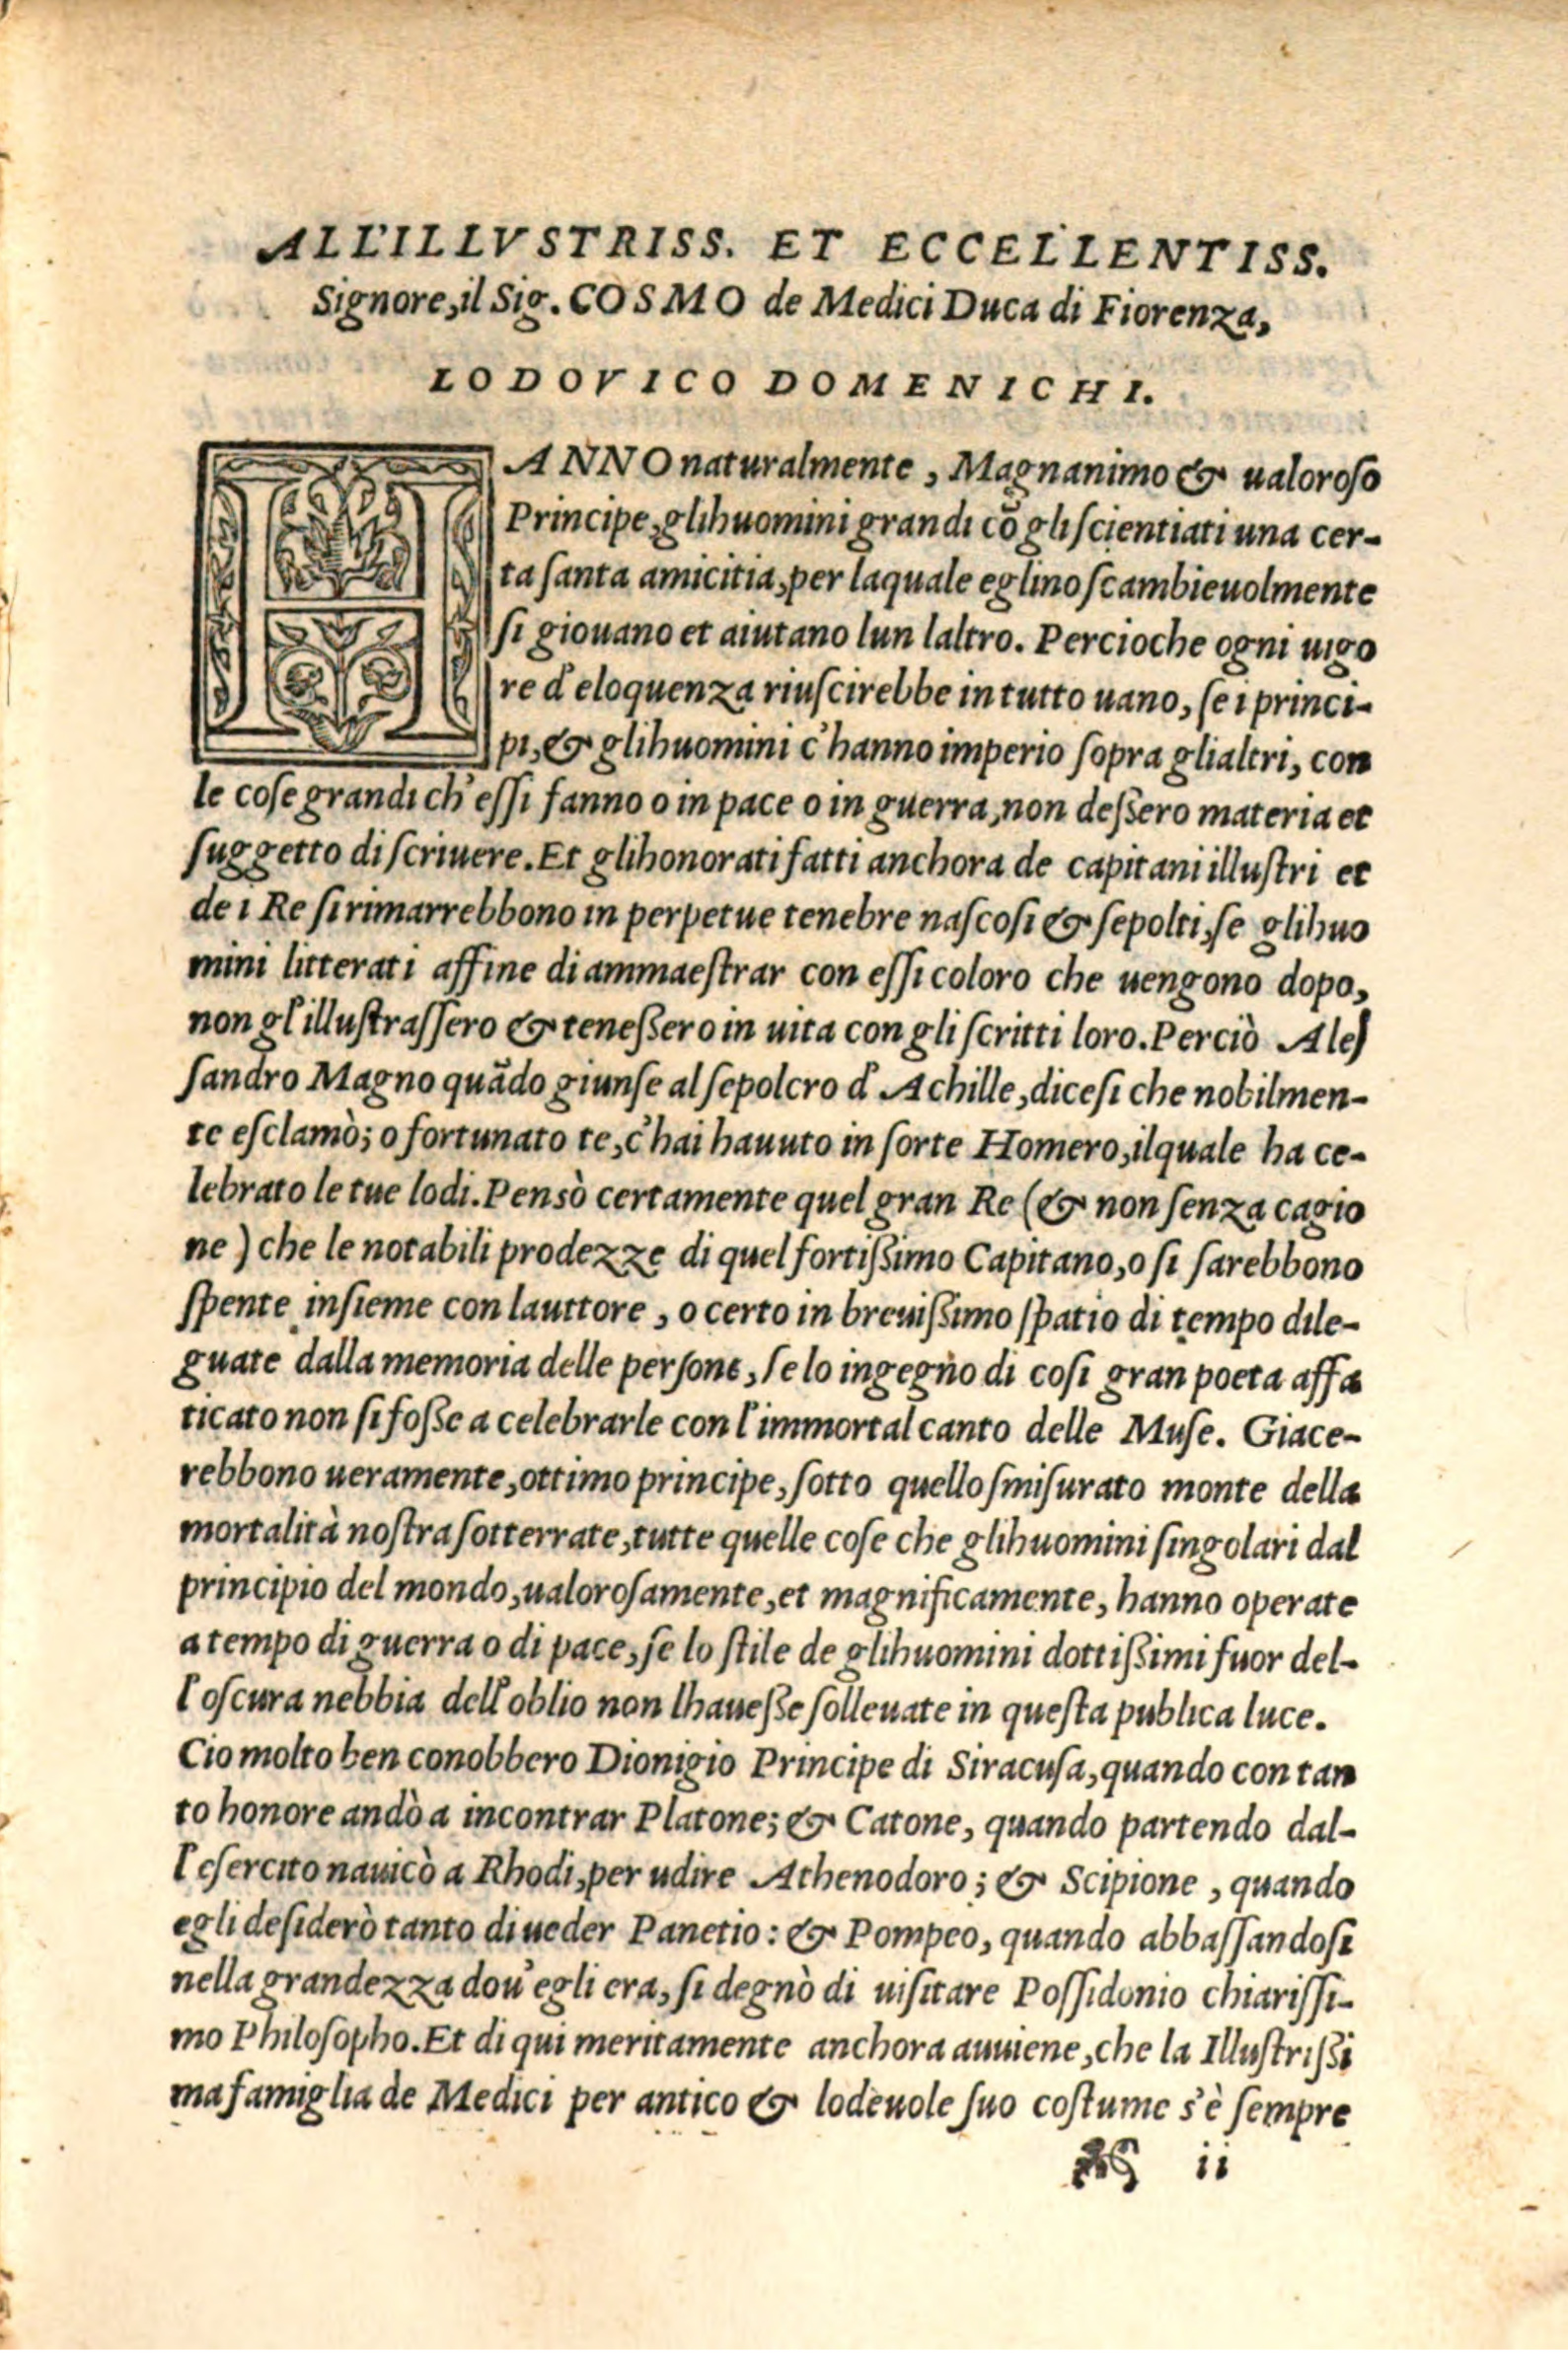 ALL'ILLVSTRISS. ET ECCELLENTISS.
Signore, il Sig. COSMO de Medici Duca di Fiorenza,
LODOVICO DOMENICHI.
HANNO naturalmente, Magnanimo & ualoroso
Principe, glihuomini grandi cō gli scientiati una cer-
ta santa amicitia, per laquale eglino scambieuolmente
si giouano et aiutano lun laltro. Percioche ogni uigo
re d'eloquenza riuscirebbe in tutto uano, se i princi-
pi, & glihuomini c'hanno imperio sopra glialtri, con
le cose grandi ch'essi fanno o in pace o in guerra, non dessero materia et
suggetto di scriuere. Et glihonorati fatti anchora de capitani illustri et
de i Re si rimarrebbono in perpetue tenebre nascosi & sepolti, se glihuo
mini litterati affine di ammaestrar con essi coloro che uengono dopo,
non gl'illustrassero & tenessero in uita con gli scritti loro. Perciò Ales
sandro Magno quādo giunse al sepolcro d'Achille, dicesi che nobilmen-
te esclamò; o fortunato te, c'hai hauuto in sorte Homero, ilquale ha ce-
lebrato le tue lodi. Pensò certamente quel gran Re (& non senza cagio
ne) che le notabili prodezze di quel fortissimo Capitano, o si sarebbono
spente insieme con lauttore, o certo in breuissimo spatio di tempo dile-
guate dalla memoria delle persone, se lo ingegno di cosi gran poeta affa
ticato non si fosse a celebrarle con l'immortal canto delle Muse. Giace-
rebbono ueramente, ottimo principe, sotto quello smisurato monte della
mortalità nostra sotterrate, tutte quelle cose che glihuomini singolari dal
principio del mondo, ualorosamente, et magnificamente, hanno operate
a tempo di guerra o di pace, se lo stile de glihuomini dottissimi fuor del-
l'oscura nebbia dell'oblio non lhauesse solleuate in questa publica luce.
Cio molto ben conobbero Dionigio Principe di Siracusa, quando con tan
to honore andò a incontrar Platone; & Catone, quando partendo dal-
l'esercito nauicò a Rhodi, per udire Athenodoro; & Scipione, quando
egli desiderò tanto di ueder Panetio: & Pompeo, quando abbassandosi
nella grandezza dou'egli era, si degnò di uisitare Possidonio chiarissi-
mo Philosopho. Et di qui meritamente anchora auuiene, che la Illustrissi
ma famiglia de Medici per antico & lodeuole suo costume s'è sempre
ii